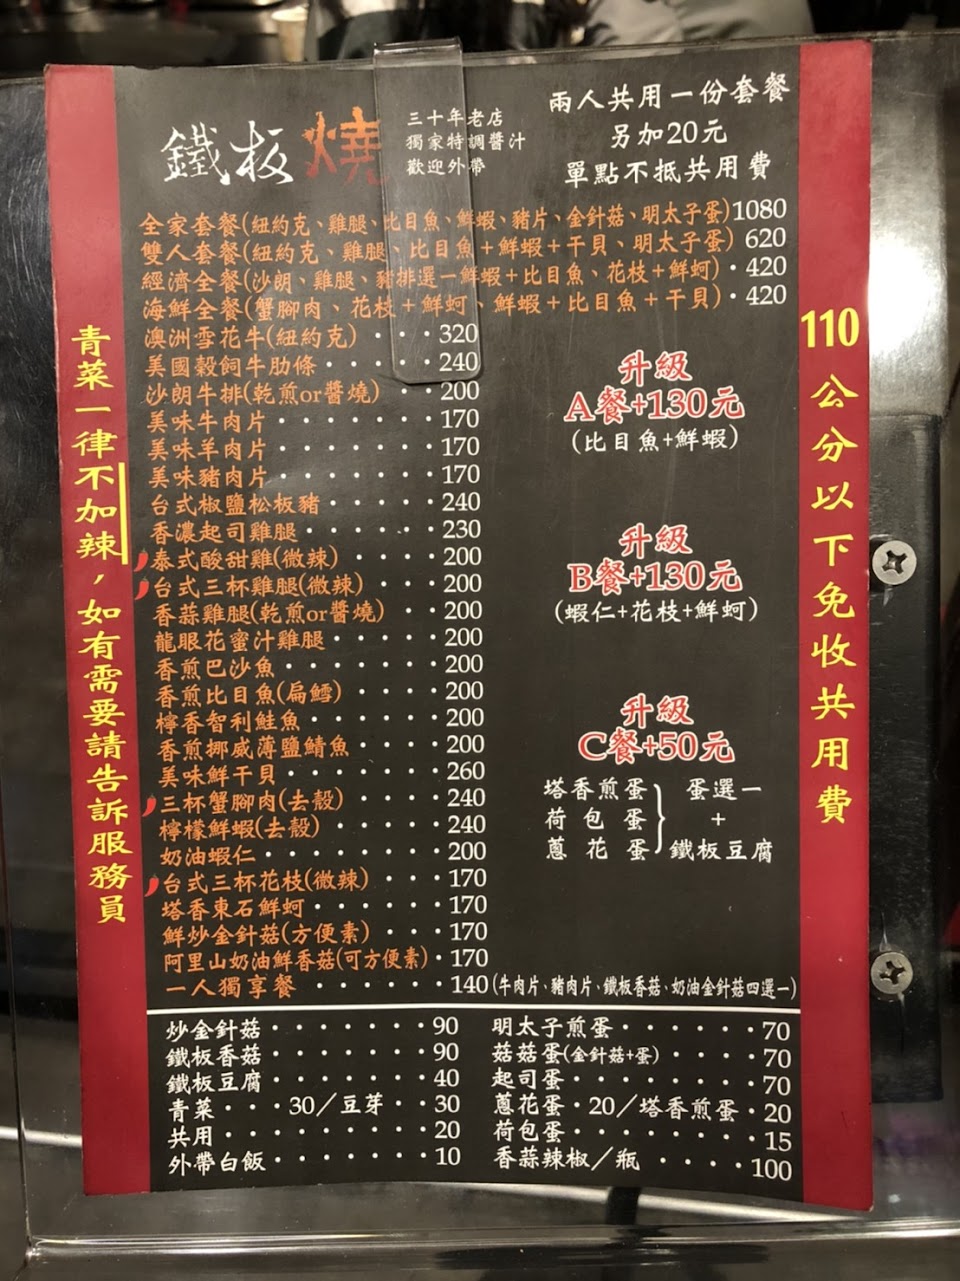 鐵板燒
三十年老店
獨家特調醬汁
歡迎外帶
兩人共用一份套餐
另加20元
單點不抵共用費
全家套餐(紐約克、雞腿、比目魚、鮮蝦、豬片、金針菇、明太子蛋)1080
雙人套餐(紐約克、雞腿、比目魚+鮮蝦+干貝、明太子蛋) 620
經濟全餐(沙朗、雞腿、豬排選一鮮蝦+比目魚、花枝+鮮蚵)·420
海鮮全餐(蟹腳肉、花枝+鮮蚵、鮮蝦+比目魚+干貝)·420
澳洲雪花牛(紐約克)···320
美國穀飼牛肋條·····240
沙朗牛排(乾煎or醬燒)··200
美味牛肉片·······170
美味羊肉片·······170
美味豬肉片·······170
台式椒鹽松板豬·····240
香濃起司雞腿······230
泰式酸甜雞(微辣)····200
台式三杯雞腿(微辣)···200
香蒜雞腿(乾煎or醬燒)··200
龍眼花蜜汁雞腿·····200
香煎巴沙魚·······200
香煎比目魚(扁鱈)····200
檸香智利鮭魚······200
香煎挪威薄鹽鯖魚····200
美味鮮干貝·······260
三杯蟹腳肉(去殼)····240
檸檬鮮蝦(去殼)·····240
奶油蝦仁········200
台式三杯花枝(微辣)···170
塔香東石鮮蚵······170
鮮炒金針菇(方便素)···170
阿里山奶油鮮香菇(可方便素)·170
一人獨享餐······140(牛肉片、豬肉片、鐵板香菇、奶油金針菇四選一)
升級
A餐+130元
(比目魚+鮮蝦)
升級
B餐+130元
(蝦仁+花枝+鮮蚵)
升級
C餐+50元
塔香煎蛋 蛋選一
荷包蛋 +
蔥花蛋 鐵板豆腐
炒金針菇·······90
鐵板香菇·······90
鐵板豆腐·······40
青菜···30/豆芽··30
共用·········20
外帶白飯·······10
明太子煎蛋······70
菇菇蛋(金針菇+蛋)····70
起司蛋········70
蔥花蛋·20/塔香煎蛋·20
荷包蛋········15
香蒜辣椒/瓶·····100
青菜一律不加辣,如有需要請告訴服務員
110公分以下免收共用費